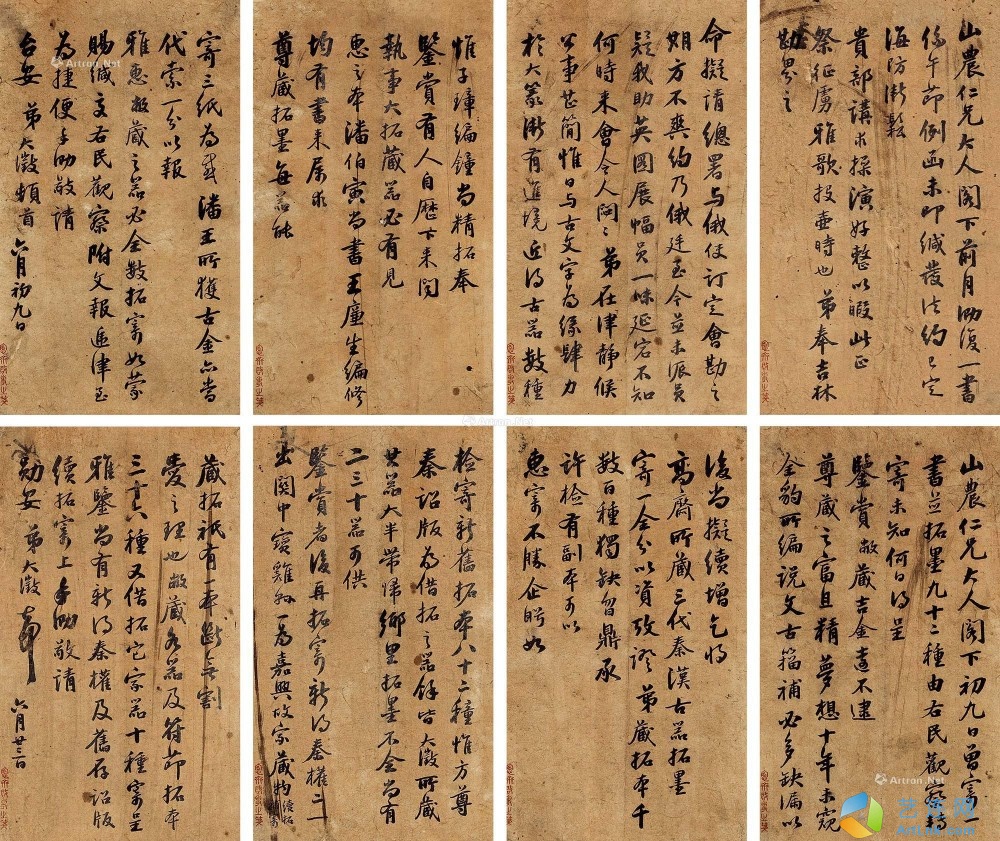 山農仁兄大人閣下前月泐復一書
係午節例函未即緘發法約已定
海防漸鬆
貴部講求操演好整以暇此正
祭征虜雅歌投壺時也弟奉吉林
勘界之
命擬請總署與俄使訂定會勘之
期方不爽約乃俄廷至今並未派員
疑我助英圖展幅員一味延宕不知
何時來會令人悶〻弟在津靜候
公事甚簡惟日與古文字為緣肆力
於大篆漸有進境近得古器數種
惟子璋編鐘尚精拓奉
鑒賞有人自歷下來閱
執事大拓藏器必有見
惠之本潘伯寅尚書王廉生編修
均有書來屬求
尊藏拓墨每器能
寄三紙為感潘王所獲古金亦當
代索一分以報
雅惠敝藏之器必全數拓寄如蒙
賜緘交右民觀察附文報遞津至
為捷便手泐敬請
台安弟大澂頓首
六月初九日
山農仁兄大人閣下初九日曾寄一
書並拓墨九十二種由右民觀察轉
寄未知何日得呈
鑒賞敝藏吉金遠不逮
尊藏之富且精夢想十年未窺
全豹所編說文古籀補必多缺漏以
後尚擬續增乞將
高齋所藏三代秦漢古器拓墨
寄一全分以資攷證弟藏拓本千
數百種獨缺曶鼎承
許檢有副本可以
惠寄不勝企盼如
檢寄新舊拓本八十二種惟方尊
秦詔版為借拓之器餘皆大澂所藏
其器大半帶歸鄉里拓墨不全尚有
二三十器可供
鑒賞者後再拓寄新得秦權二
出關中寶雞縣一為嘉興故家藏物
藏拓祇有一本斷無割
愛之理也敝藏各器及符節拓本
三十六種又借拓它字器十種寄呈
雅鑒尚有新得秦權及舊存詔版
續拓寄上手泐敬請
勛安弟大澂頓首
六月廿三日
Artron.Net